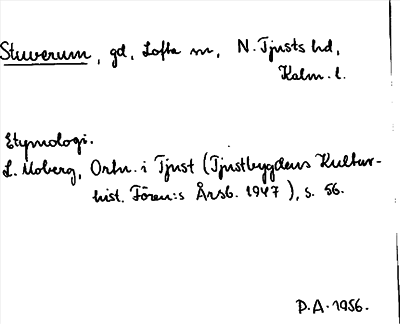 Stuverum, gd, Lofta sn, N. Tjusts hd,
Kalm. l.
Etymologi.
L. Moberg, Ortn. i Tjust (Tjustbygdens Kultur-
hist. Fören:s Årsb. 1947), s. 56.
P.A. 1956.